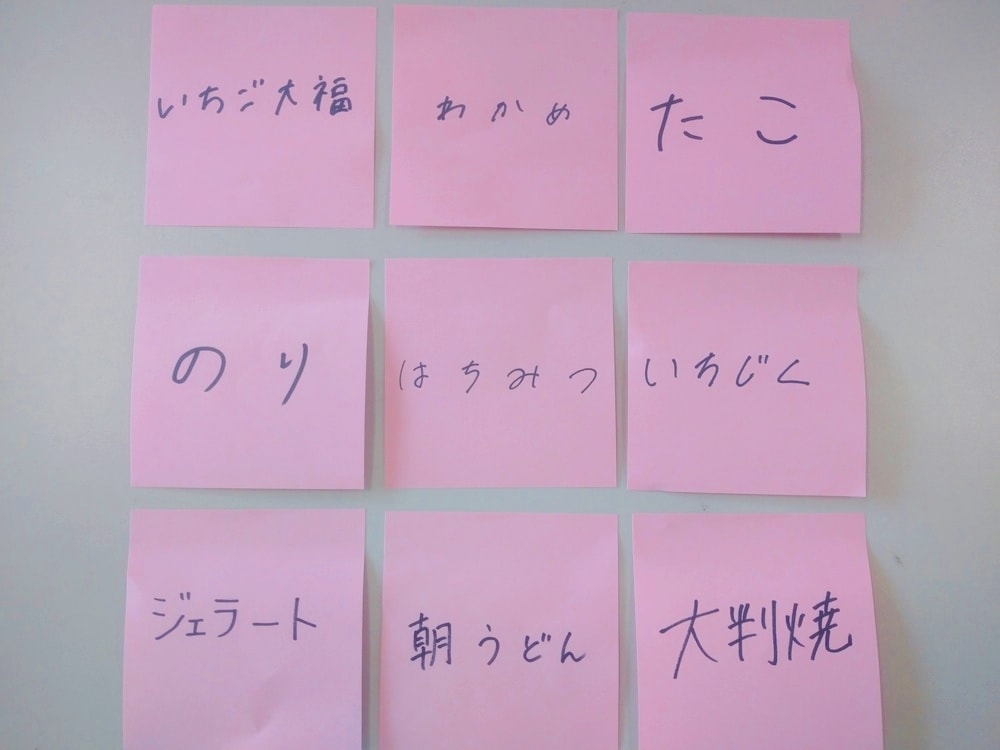 いちご大福
わかめ
たこ
のり
はちみつ
いちじく
ジェラート
朝うどん
大判焼